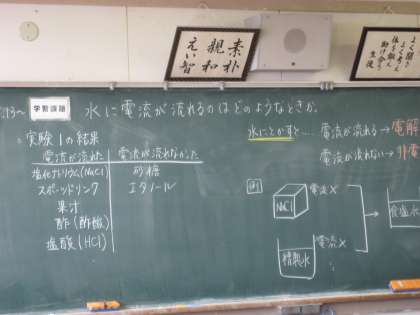 素朴
親和
えい智
よく聞き
よく考え
体を鍛え
助け合う
生徒
P.13～ 学習課題 水に電流が流れるのはどのようなときか。
○実験1の結果
電流が流れた 電流が流れなかった
塩化ナトリウム(NaCl) 砂糖
スポーツドリンク エタノール
果汁
酢(酢酸)
塩酸(HCl)
水にとかすと…. 電流が流れる→電解
電流が流れない→非電
例
NaCl 電流×
精製水 電流×
食塩水